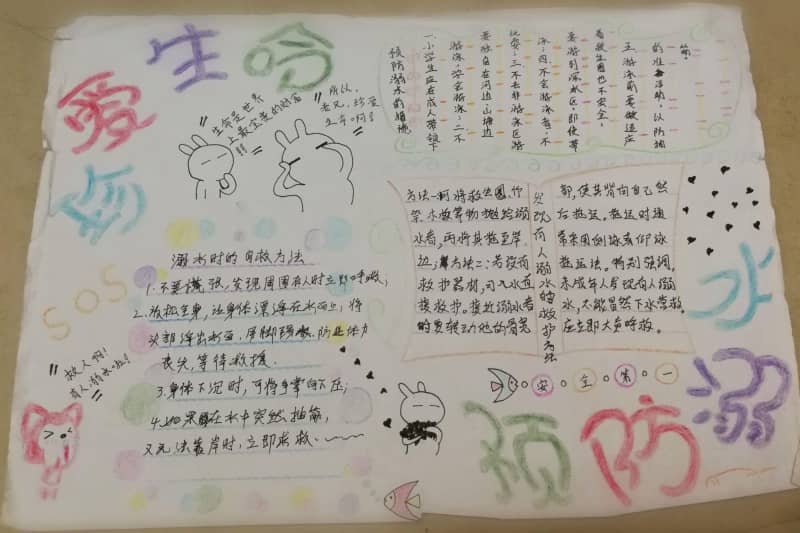 珍
爱
生
命
预
防
溺
水
生命是世界
上最宝贵的财富
所以，
老兄，珍爱
生命啊！
预防溺水的措施
一、小学生应在成人带领下
游泳，学会游泳；二、不
要独自在河边、山塘边
玩耍；三、不去非游泳区游
泳；四、不会游泳者，不
要游到深水区，即使带
着救生圈也不安全；
五、游泳前要做适应
的准备活动，以防抽
筋。
溺水时的自救方法
1.不要慌张，发现周围有人时立即呼喊；
2.放松全身，让身体漂浮在水面上，将
头部浮出水面，用脚踢水，防止体力
丧失，等待救援。
3.身体下沉时，可将手掌向下压；
4.如果在水中突然抽筋，
又无法靠岸时，立即求救。
SOS
救人啊！
有人溺水啦！
发现有人溺水的救护方法
方法一：可将救生圈、竹
竿、木板等物抛给溺
水者，再将其拖至岸
边；方法二：若没有
救护器材，可入水直
接救护。接近溺水者
时要转动他的髋
部，使其背向自己然
后拖运。拖运时通
常采用侧泳或仰泳
拖运法。特别强调：
未成年人发现有人溺
水，不能冒然下水营救，
应立即大声呼救。
安全第一